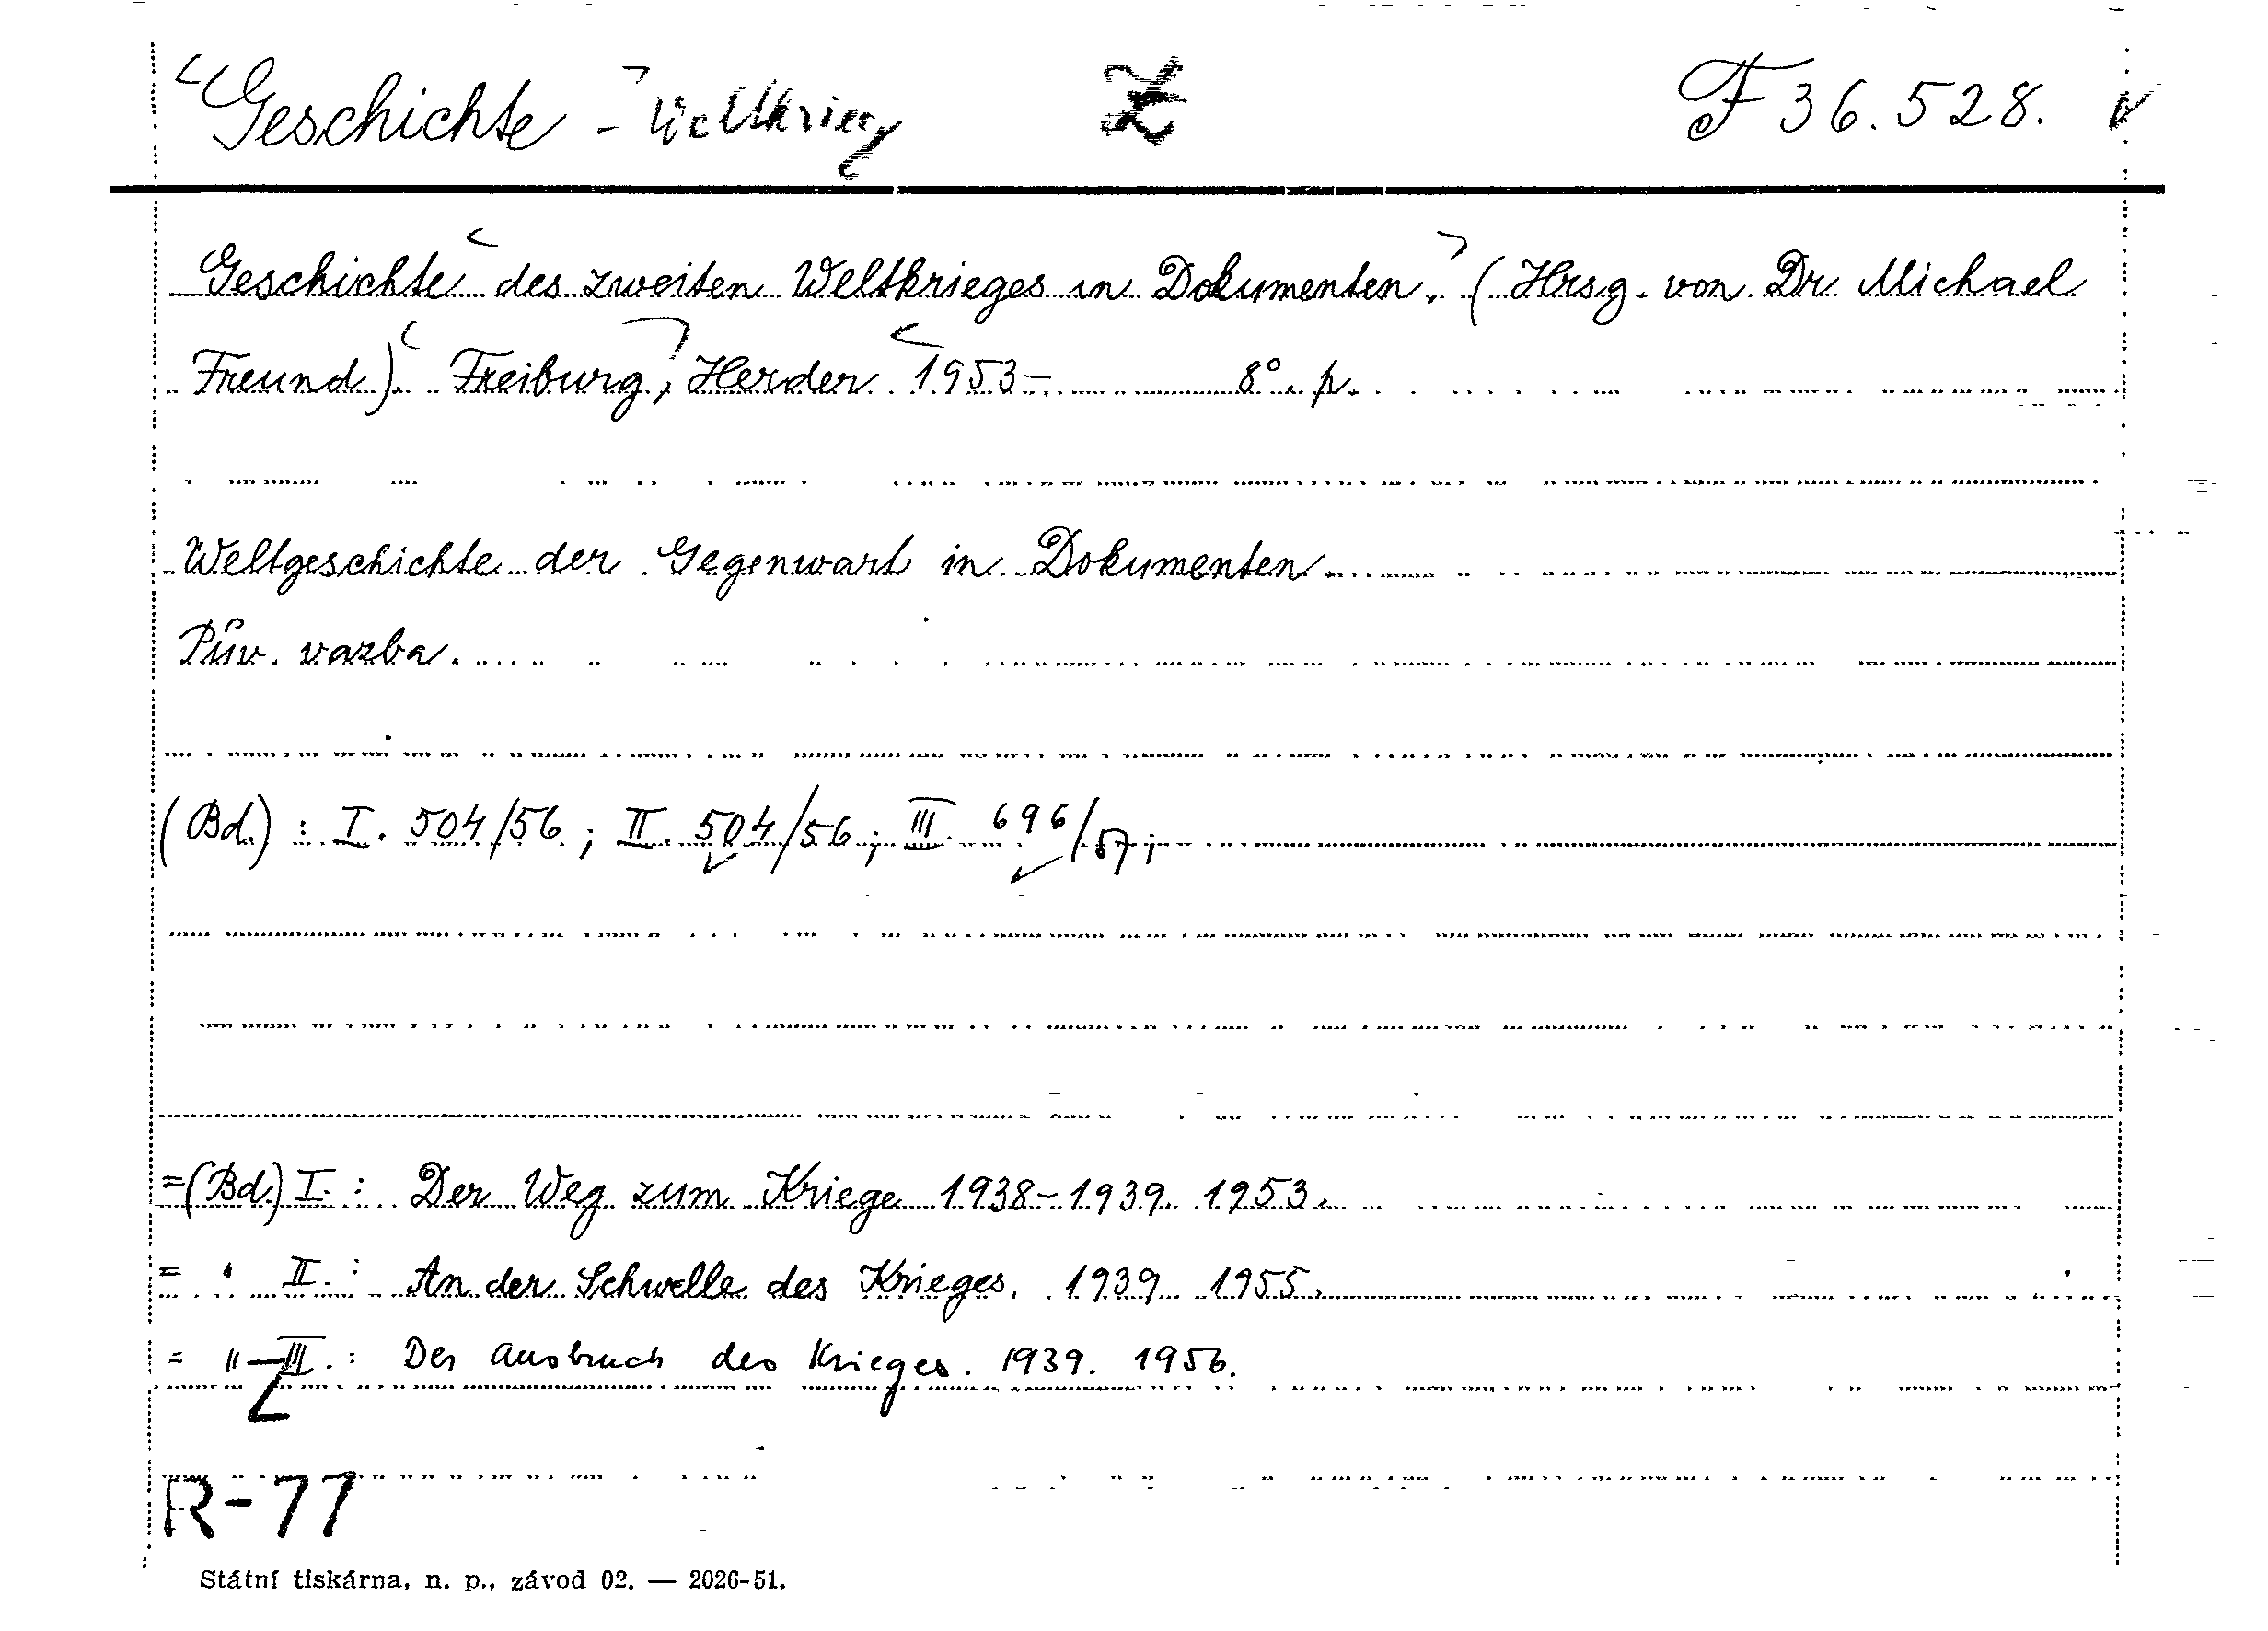 Geschichte - Weltkrieg Z F 36.528.
Geschichte des zweiten Weltkrieges in Dokumenten. (Hrsg. von Dr. Michael
Freund). Freiburg, Herder 1953- 8°. p.
Weltgeschichte der Gegenwart in Dokumenten
Pův. vazba.
(Bd.) : I. 504/56 ; II. 504/56 ; III. 696/57 ;
=(Bd.) I. : Der Weg zum Kriege 1938-1939. 1953.
= " II. : An der Schwelle des Krieges. 1939. 1955.
= " III. : Der Ausbruch des Krieges. 1939. 1956.
R-77
Státní tiskárna, n. p., závod 02. — 2026-51.